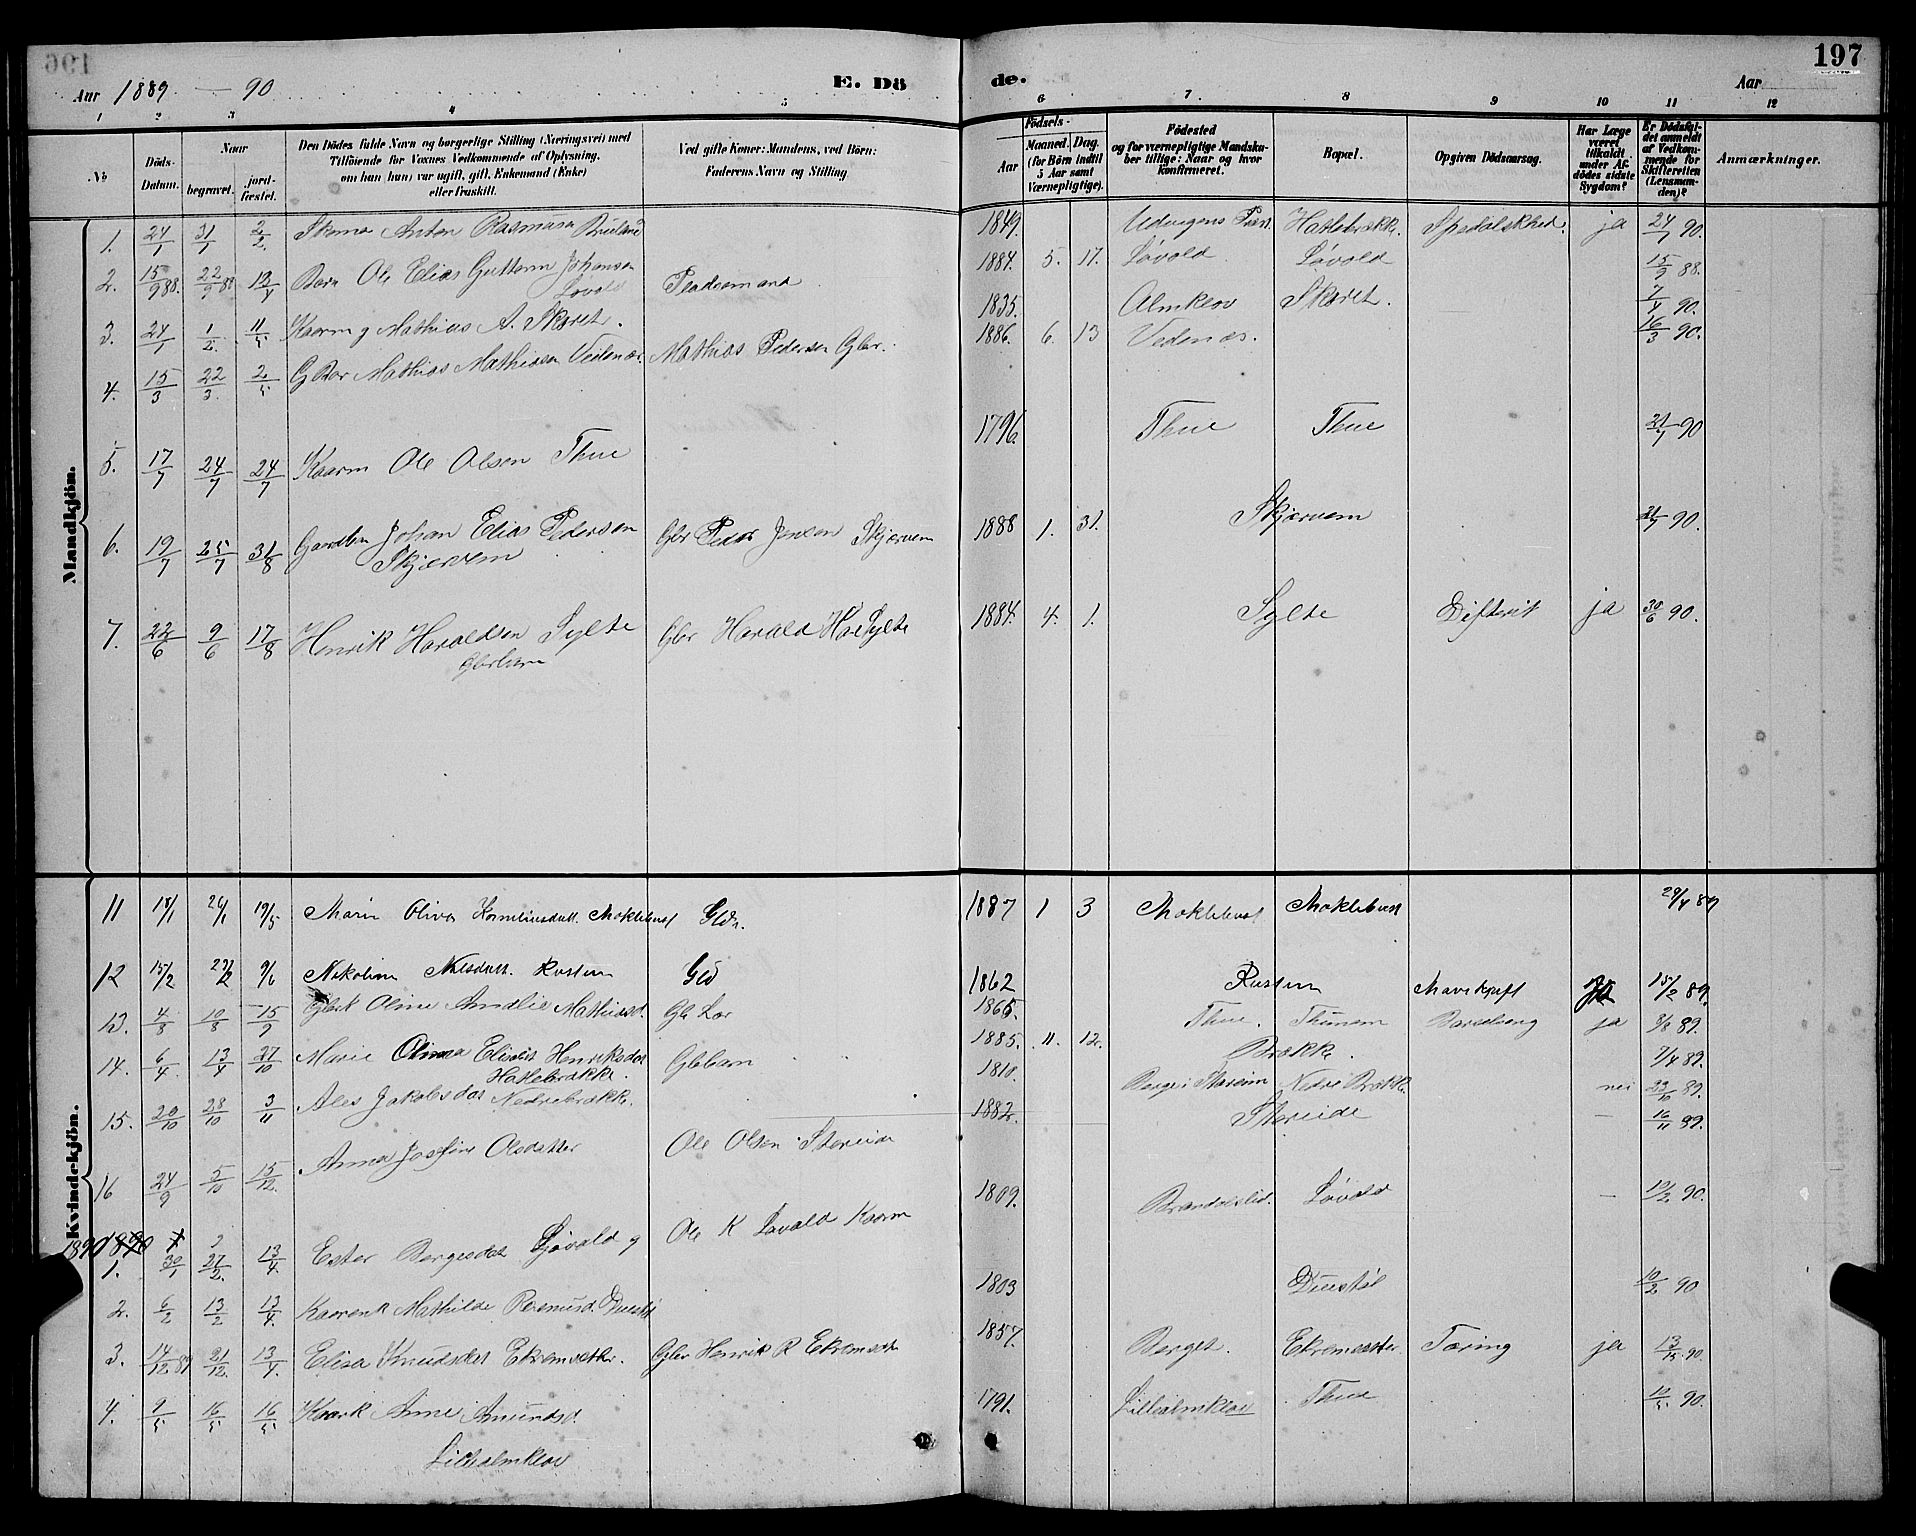 196
197
Aar 1889 — 90
E. Dö de.
Aar
1 2 3 4 5 6 7 8 9 10 11 12
No
Döds-Datum.
Naar
begravet.
jord-fæstet.
Den Dödes fulde Navn og borgerlige Stilling (Næringsvei) med
Tilföiende for Voxnes Vedkommende af Oplysning,
om han (hun) var ugift, gift, Enkemand (Enke)
eller fraskilt.
Ved gifte Koner: Mandens, ved Börn:
Faderens Navn og Stilling.
Födsels-
Aar
Maaned. Dag.
(for Börn indtil
5 Aar samt
Værnepligtige).
Födested
og for værnepligtige Mandskaber tillige: Naar og hvor
konfirmeret.
Bopæl.
Opgiven Dödsaarsag.
Har Læge
været
tilkaldt
under Afdödes sidste
Sygdom?
Er Dödsfaldet anmeldt
af Vedkommende for
Skifteretten
(Lensmanden)?
Anmærkninger.
Mandkjön.
1. 24/1 31/1 2/2 Anton Rasmusen 1849. Hatlebrække. Spedalskhed. ja 24/1 90.
2. 15/9 88. 22/9 88 13/4 Barn Ole Elias Guttorm Johansen Løvold Pladsemand 1884. 5. 17. Løvold. Løvold 15/9 88.
3. 24/1 1/2. 11/5 Kaarm g Mathias A. Skaret. 1835. Almklov Skaret. 7/4 90.
4. 15/3 22/3. 2/5 G Bar Mathias Mathiesen Vedenæs. Mathias Pedersen Gbr. 1886. 6. 13 Vedenæs. 16/3 90.
5. 17/7 24/7 24/7 Kaarm Ole Olsen Thue 1796. Thue Thue 21/7 90
6. 19/7 25/7 31/8 Johan Elias Pedersen Skjærvem Gbr Peder Jensen Skjærvem 1888 1. 31. Skjærvem 21/7 90.
7. 22/6 9/6 17/8 Henrik Haraldsen Sylte Gbrbarn Gbr Harald Sylte 1884. 4. 1. Sylte Difterit ja 30/6 90.
Kvindekjön.
11 18/1 26/1 19/5 Marie Oliva Korneliusdatt. Moklebust Gbr. 1887 1 3 Moklebust Moklebust 29/4 89
12 15/2 9/6 Nikoline Nilsdatt. Rusten Gbr 1862 Rusten Mavekræft Ja 15/2 89.
13. 4/8 10/8 15/9 Gbrk Oline Amalie Mathiasd. 1865. Thue. Thunem Barselseng ja 8/8 89.
14. 6/4. 13/4 27/10 Marie Olivia Elisabet Henriksdat Hatlebrække. Gbrbarn 1885. 11. 12. Brække. 7/4 89.
15. 20/10 28/10 3/11 Ales Jakobsdat Nedrebrække. 1810. Berge i Stareim Nedre Brække. nei 23/10 89.
16 24/9 5/10 15/12. Anna Josefine Olsdatter Ole Olsen Stareide 1882. Stareide — 16/11 89.
1890
1. 30/1 27/2. 13/4 Ester Børgesdat Løvold g Ole K Løvold Kaarm 1809. Løvold — 12/2 90.
2. 6/2 13/2 13/4. Kaarenk Mathilde Rasmusd. Duestøl 1803 Duestøl 10/2 90
3. 14/12 89 21/12. 13/4. Elisa Knudsdat Ekremsæter. Gbr Henrik R Ekremsæt 1857. Berget. Ekremsæter Tæring ja 90.
4. 9/5 16/5 16/5 Kaark Anne Amundsd. Lillealmklov 1791. Lillealmklov Thue 10/5 90.